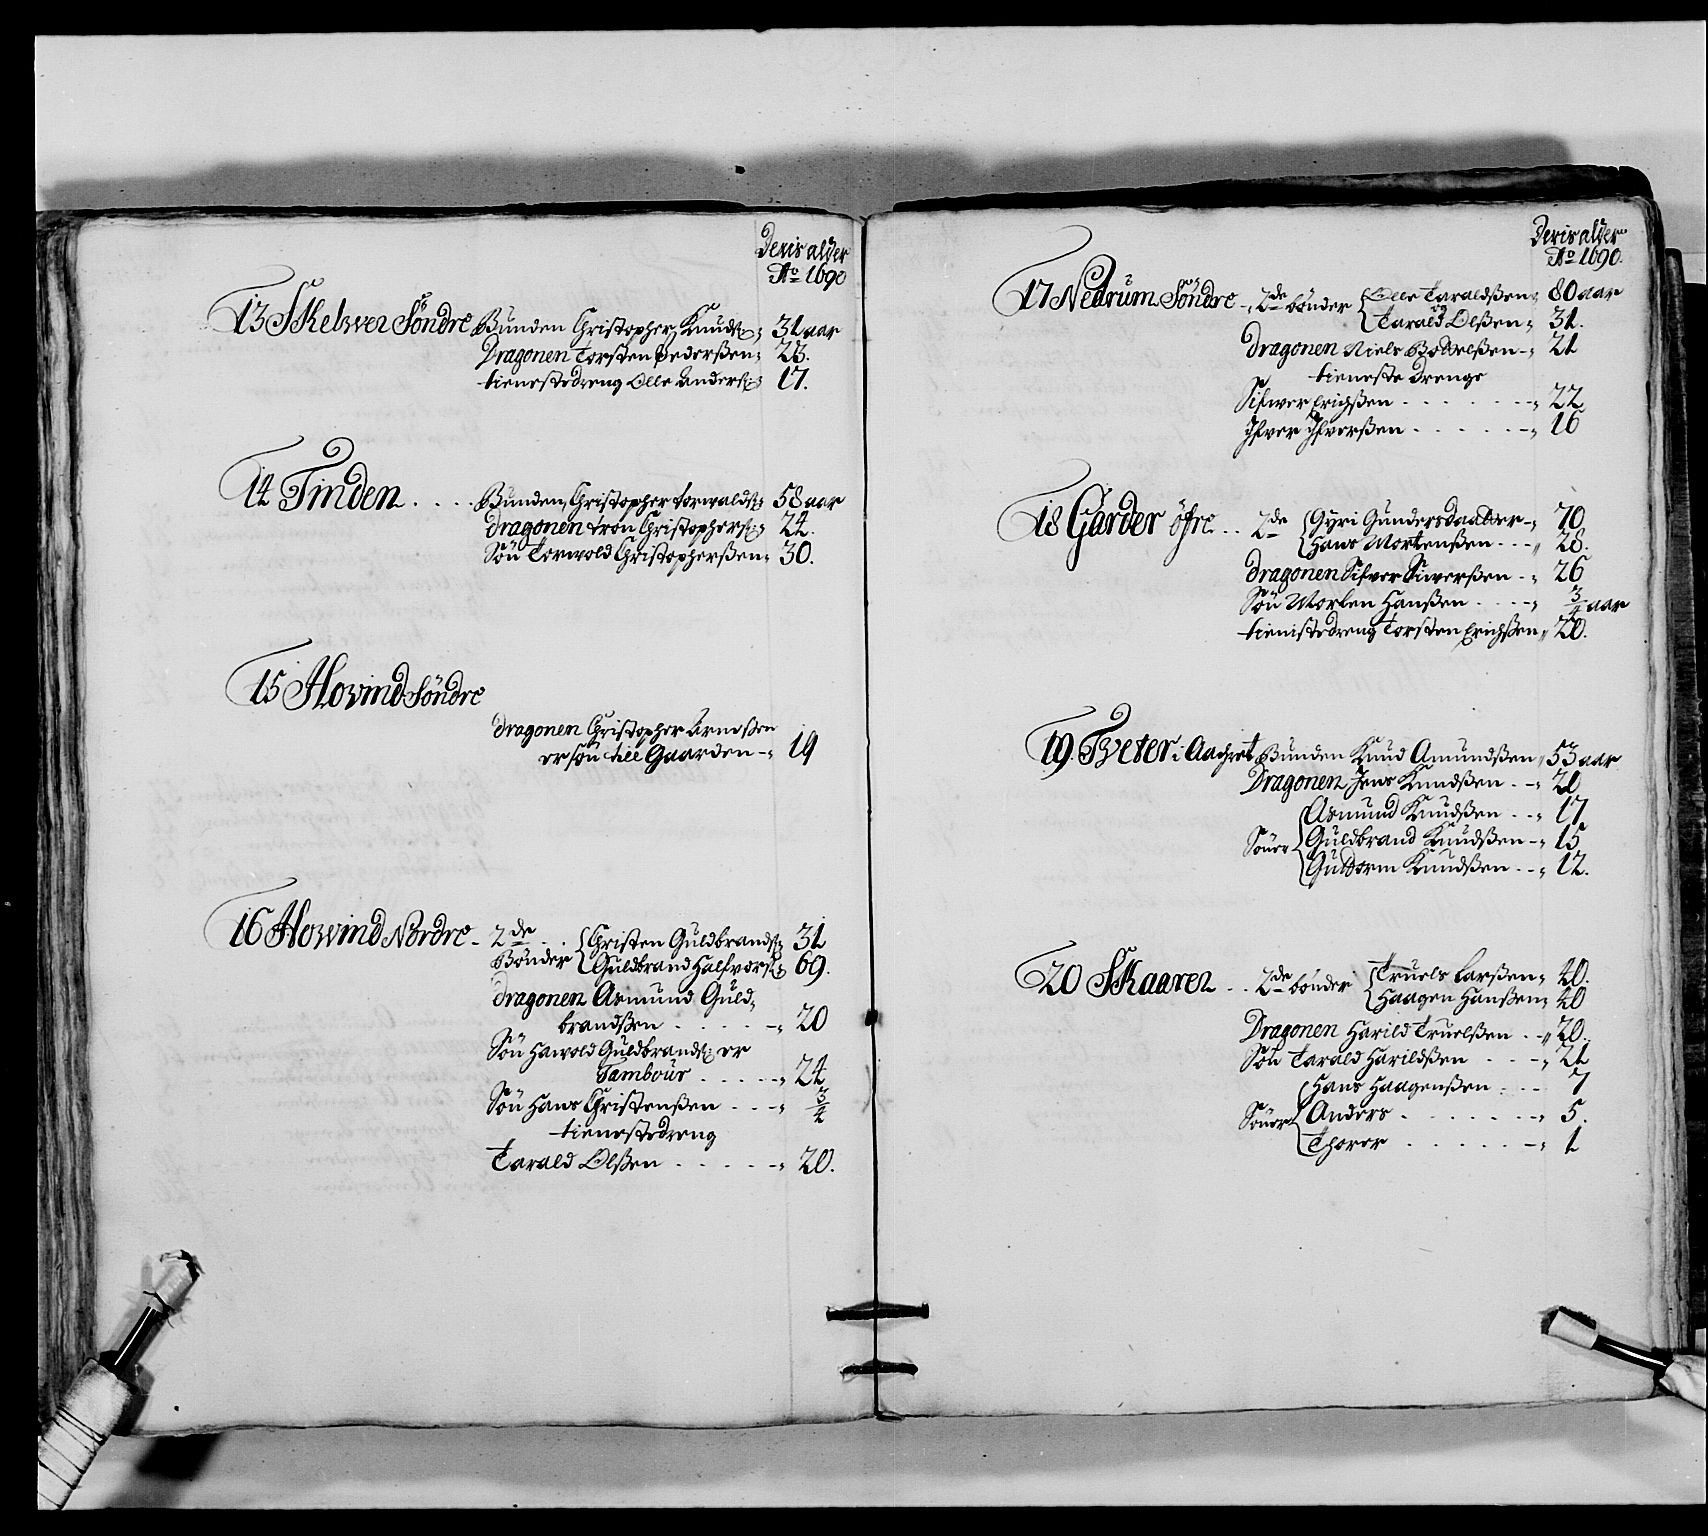 Deris alder
Ao 1690
13 Skelwer Söndre Bunden Christopher Knuds: 31 aar
Dragonen Torsten Pederßen 23.
tienestedreng Olle Anders: 17.
14 Finden . . . . Bunden Christopher Torwalds: 58 aar
dragonen Tron Christophers: 24.
Sön Torwold Christopherßen 30.
15 Howind Söndre
dragonen Christopher Arneßen
er sön till Gaarden 19
16 Howind Nordre 2de . . { Christen Guldbrands: 31
Bönder { Guldbrand Halfvors: 69.
dragonen Asmund Guld-
brandßen . . . . . 20
Sön Hawold Guldbrands: er
Tambour . . . . . 24
Sön Hans Christenßen . . . 3/4
tienestedreng
Tarald Olßen . . . . . 20.
Deris alder
Ao 1690.
17 Nedrum Söndre 2de bönder { Olle Taraldßen 80 aar
og
{ Tarald Olßen 31.
dragonen Niels Bottelßen 21
tieneste drenge
Sifwer Erichßen . . . . . . 22
Ifver Ifverßen . . . . . . 16
18 Garder öfre . . 2de { Gyri Gundersdaatter 70
{ Hans Mortenßen . . . 28.
dragonen Sifver Siwerßen 26
Sön Morten Hanßen . . . . 3/4 aar
tienistedreng Torsten Erichßen 20.
19. Tveter i Bunden Knud Amundßen 53 aar
Dragonen Jens Knudßen . . 20
{ Asmund Knudßen . . 17
Söner { Guldbrand Knudßen 15
{ Guttorm Knudßen . . 12.
20 Skaaren . . 2de bönder { Truels Larßen 40.
{ Haagen Hanßen 40
Dragonen Harild Truelßen . . 20.
Sön Tarald Harildßen . . . 21
{ Hans Haagenßen . . . 7
Söner { Anders . . . . . . . 5.
{ Thorer . . . . . . 1